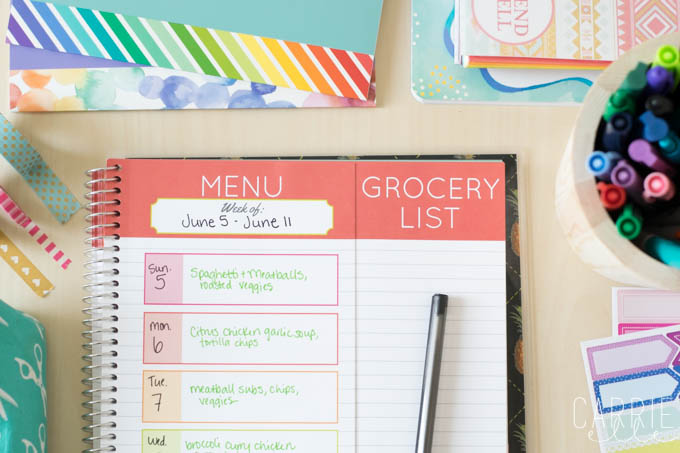 END
ELL
MENU
Week of:
June 5 - June 11
GROCERY
LIST
Sun.
5
Spaghetti + Meatballs,
roasted veggies
Mon.
6
Citrus chicken garlic soup,
tortilla chips
Tue.
7
meatball subs, chips,
veggies
Wed
broccoli curry chicken
CARRIE
elle